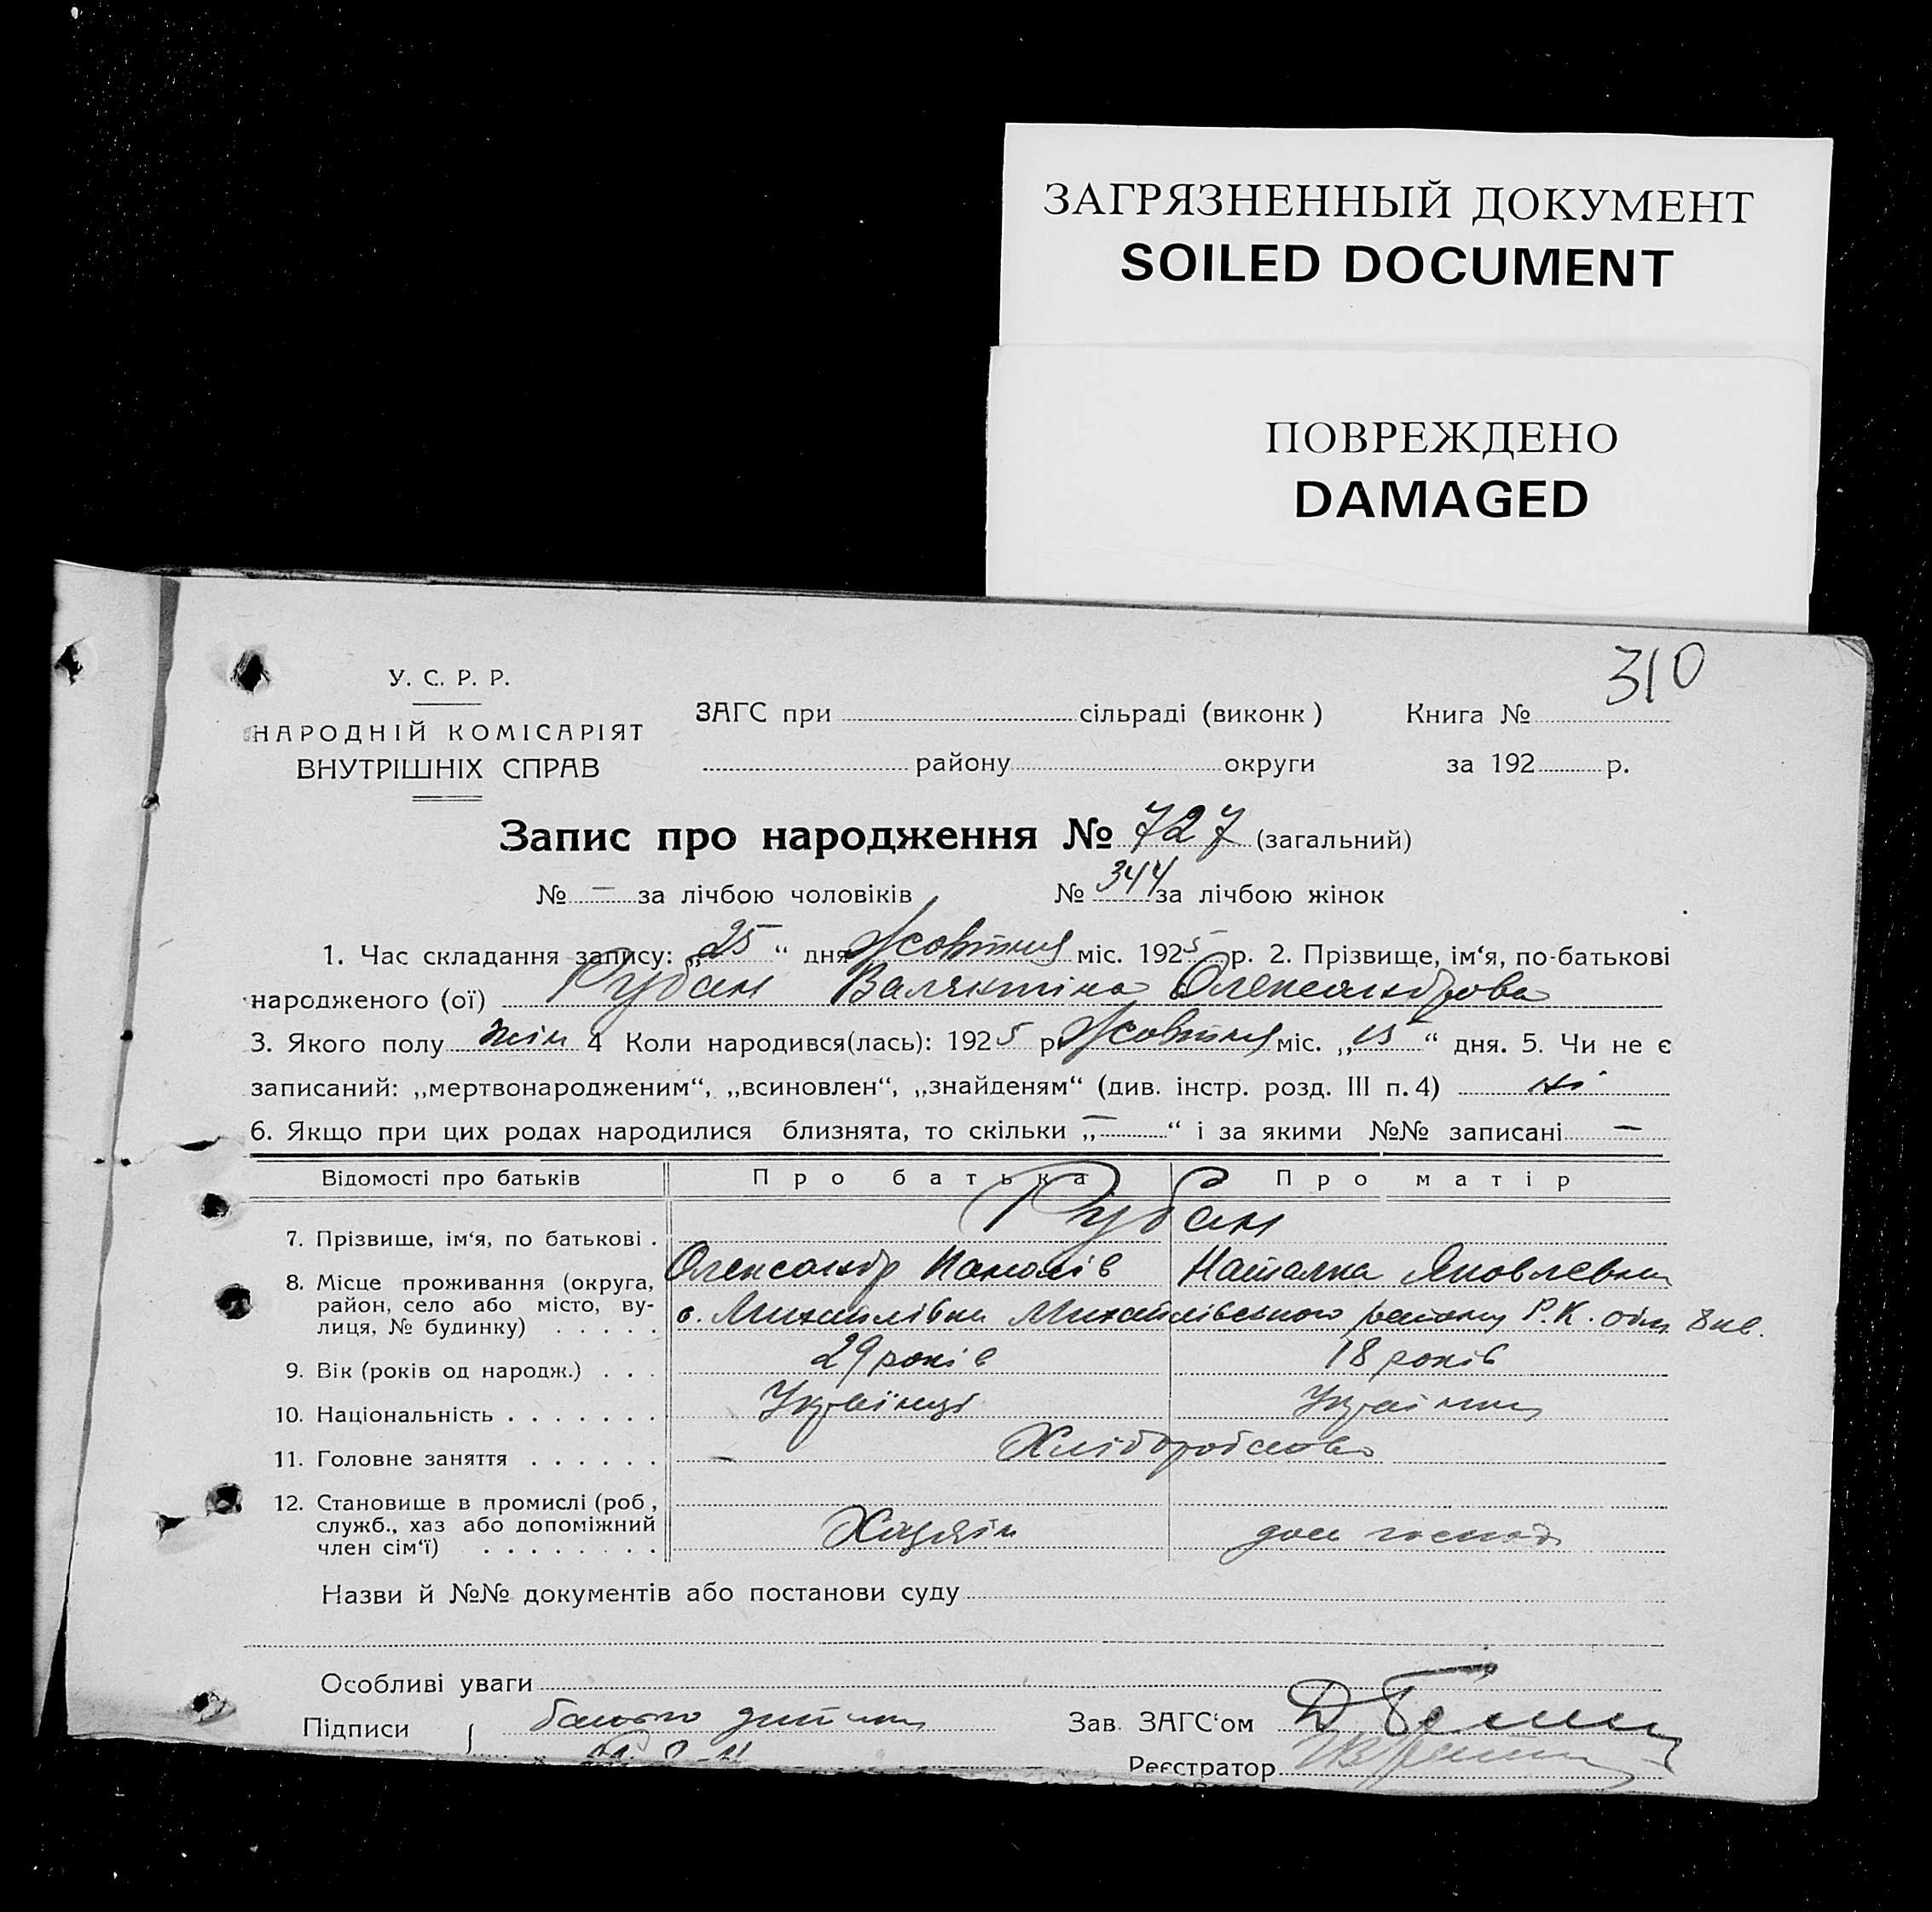 ЗАГРЯЗНЕННЫЙ ДОКУМЕНТ
SOILED DOCUMENT
ПОВРЕЖДЕНО
DAMAGED
310
У. С. Р. Р.
НАРОДНІЙ КОМІСАРІЯТ
ВНУТРІШНІХ СПРАВ
ЗАГС при сільраді (виконк) Книга №
району округи за 192 р.
Запис про народження № 727 (загальний)
№ — за лічбою чоловіків № 344 за лічбою жінок
1. Час складання запису: „25“ дня Жовтня міс. 1925 р. 2. Прізвище, ім‘я, по-батькові
народженого (ої) Рубан Валентіна Олександрова
3. Якого полу жін 4 Коли народився(лась): 1925 р. Жовтня міс. „15“ дня. 5. Чи не є
записаний: „мертвонародженим“, „всиновлен“, „знайденям“ (див. інстр. розд. III п. 4) ні
6. Якщо при цих родах народилися близнята, то скільки „—“ і за якими №№ записані —
Відомості про батьків Про батька Про матір
7. Прізвище, ім‘я, по батькові . Рубан
Олександр Наталка Яковлевна
8. Місце проживання (округа, район, село або місто, вулиця, № будинку) . . . . . с. Михайлівка Михайлівського району Р.К.
9. Вік (років од народж.) . . . 29 років 18 років
10. Національність . . . . . . . Українці Українка
11. Головне заняття . . . . . . — Хліборобство
12. Становище в промислі (роб, служб., хаз або допоміжний член сім‘ї) . . . . . . . . Хазяїн дом господ
Назви й №№ документів або постанови суду
Особливі уваги
Підписи батько дитини Зав. ЗАГС‘ом
Реєстратор